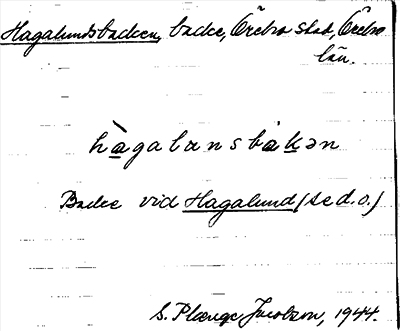 Hagalundsbacken, backe, Örebro stad, Örebro
län.
hàgalɑnsbàkən
Backe vid Hagalund (se d.o.)
S. Plænge Jacobson, 1944.